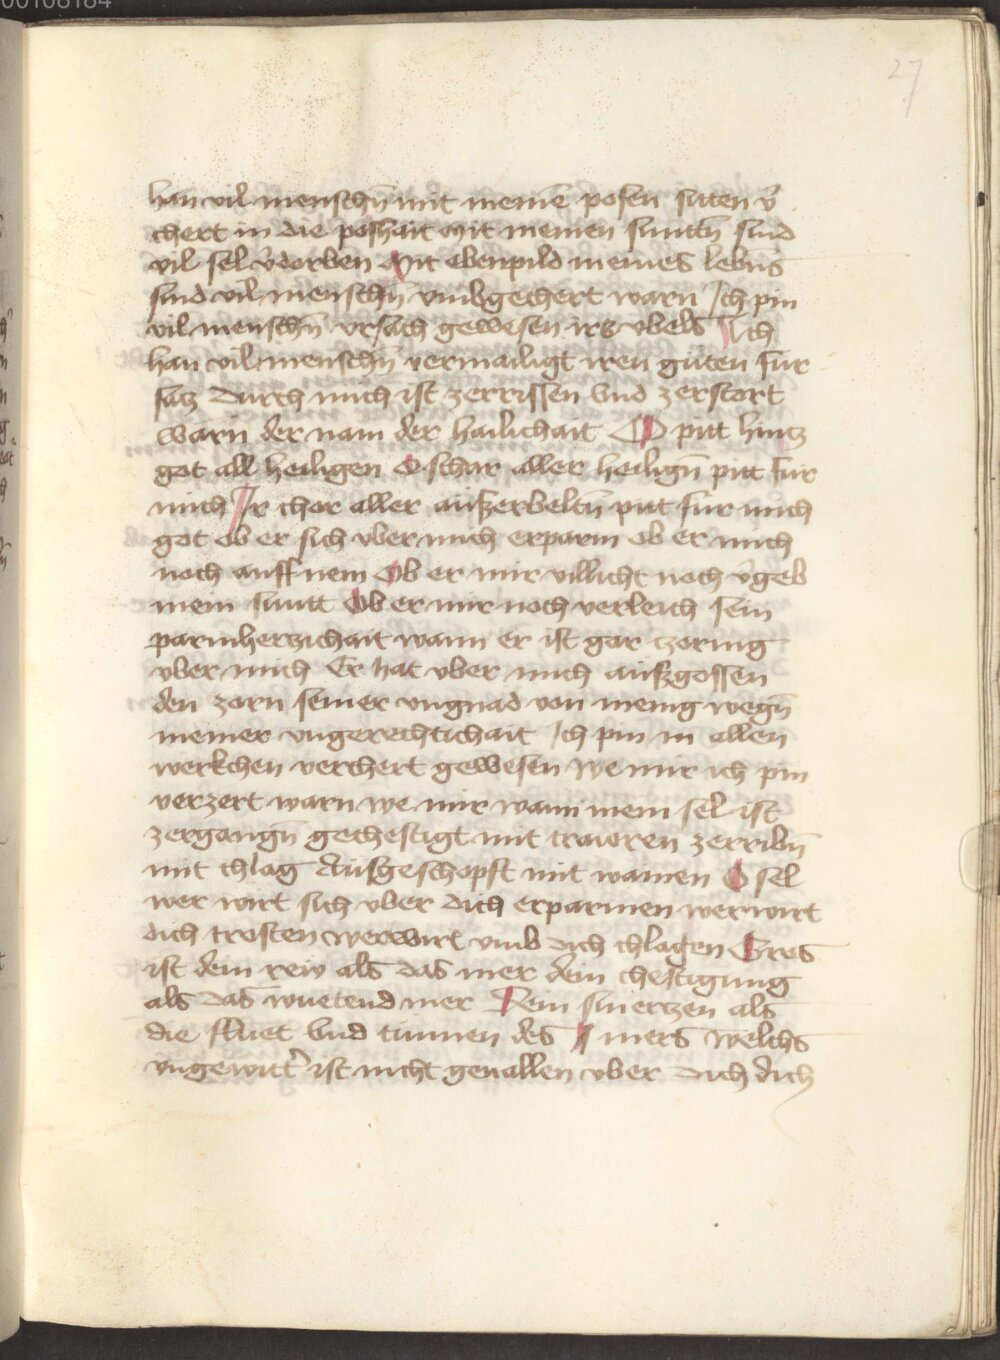 00108184
27
han vil menschn̄ mit meinē posen siten v̄
chert in die poshait Mit meinen suntn̄ sind
vil sel v̄dorben Mit ebenpild meines lebn̄s
sind vil menschn̄ vmbgechert warn Ich pin
vil menschn̄ vrsach gewesen irs vbels Ich
han vil menschn̄ vermailigt iren guten fur
satz durch mich ist zerrissen vnd zerstort
warn der nam der hailichait O pitt hintz
got all heiligen O schar aller heilign̄ pitt fur
mich Ir chor aller auszerbeltn̄ pitt fur mich
got ob er sich vber mich erparm ob er mich
noch auff nem Ob er mir villicht noch v̄geb
mein suntt Ob er mir noch verleich sein
parmhertzichait wann er ist gar zornig
vber mich Er hat vber mich auszgossen
den zorn seiner vngnad von menig wegn̄
meiner vngerechtichait Ich pin in allen
werkchen verchert gewesen we mir ich pin
verzert warn we mir wann mein sel ist
zergangn̄ gechestigt mit trawren zerribn̄
mit chlag Ausgeschopft mit wainen O sel
wer wirt sich vber dich erparmen wer wirt
dich trosten wer wirt vmb dich chlagen Gros
ist dein rew als das mer dein chestigung
als das wuetend mer Dein smertzen als
die fluet vnd tunnen des mers welchs
vngewitt̄ ist nicht geuallen vber dich dich